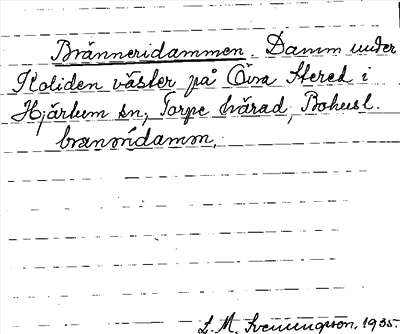 Bränneridammen. Damm under
Koliden väster på Övra Stered i
Hjärtum sn, Torpe härad, Bohusl.
brannridamm,
L. M. Svenungsson, 1935.